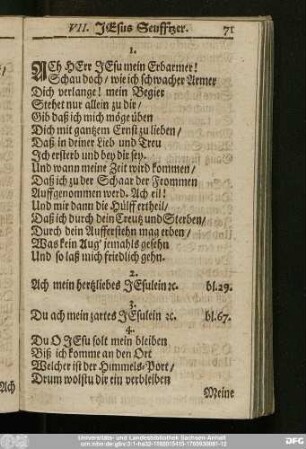 VII. JEsus Seufftzer. 71
1.
ACh HErr JEsu mein Erbarmer!
Schau doch/ wie ich schwacher Armer
Dich verlange! mein Begier
Stehet nur allein zu dir/
Gib daß ich mich möge üben
Dich mit gantzem Ernst zu lieben/
Daß in deiner Lieb und Treu
Ich ersterb und bey dir sey.
Und wann meine Zeit wird kommen/
Daß ich zu der Schaar der Frommen
Auffgenommen werd. Ach eil!
Und mir dann die Hülff ertheil/
Daß ich durch dein Creutz und Sterben/
Durch dein Aufferstehn mag erben/
Was kein Aug' jemahls gesehn
Und so laß mich friedlich gehn.
2.
Ach mein hertzliebes JEsulein ꝛc. bl.29.
3.
Du ach mein zartes JEsulein ꝛc. bl.67.
4.
Du O JEsu solt mein bleiben
Biß ich komme an den Ort
Welcher ist der Himmels-Port/
Drum wolstu dir ein verbleiben
Meine
Ach
Universitäts- und Landesbibliothek Sachsen-Anhalt
DFG